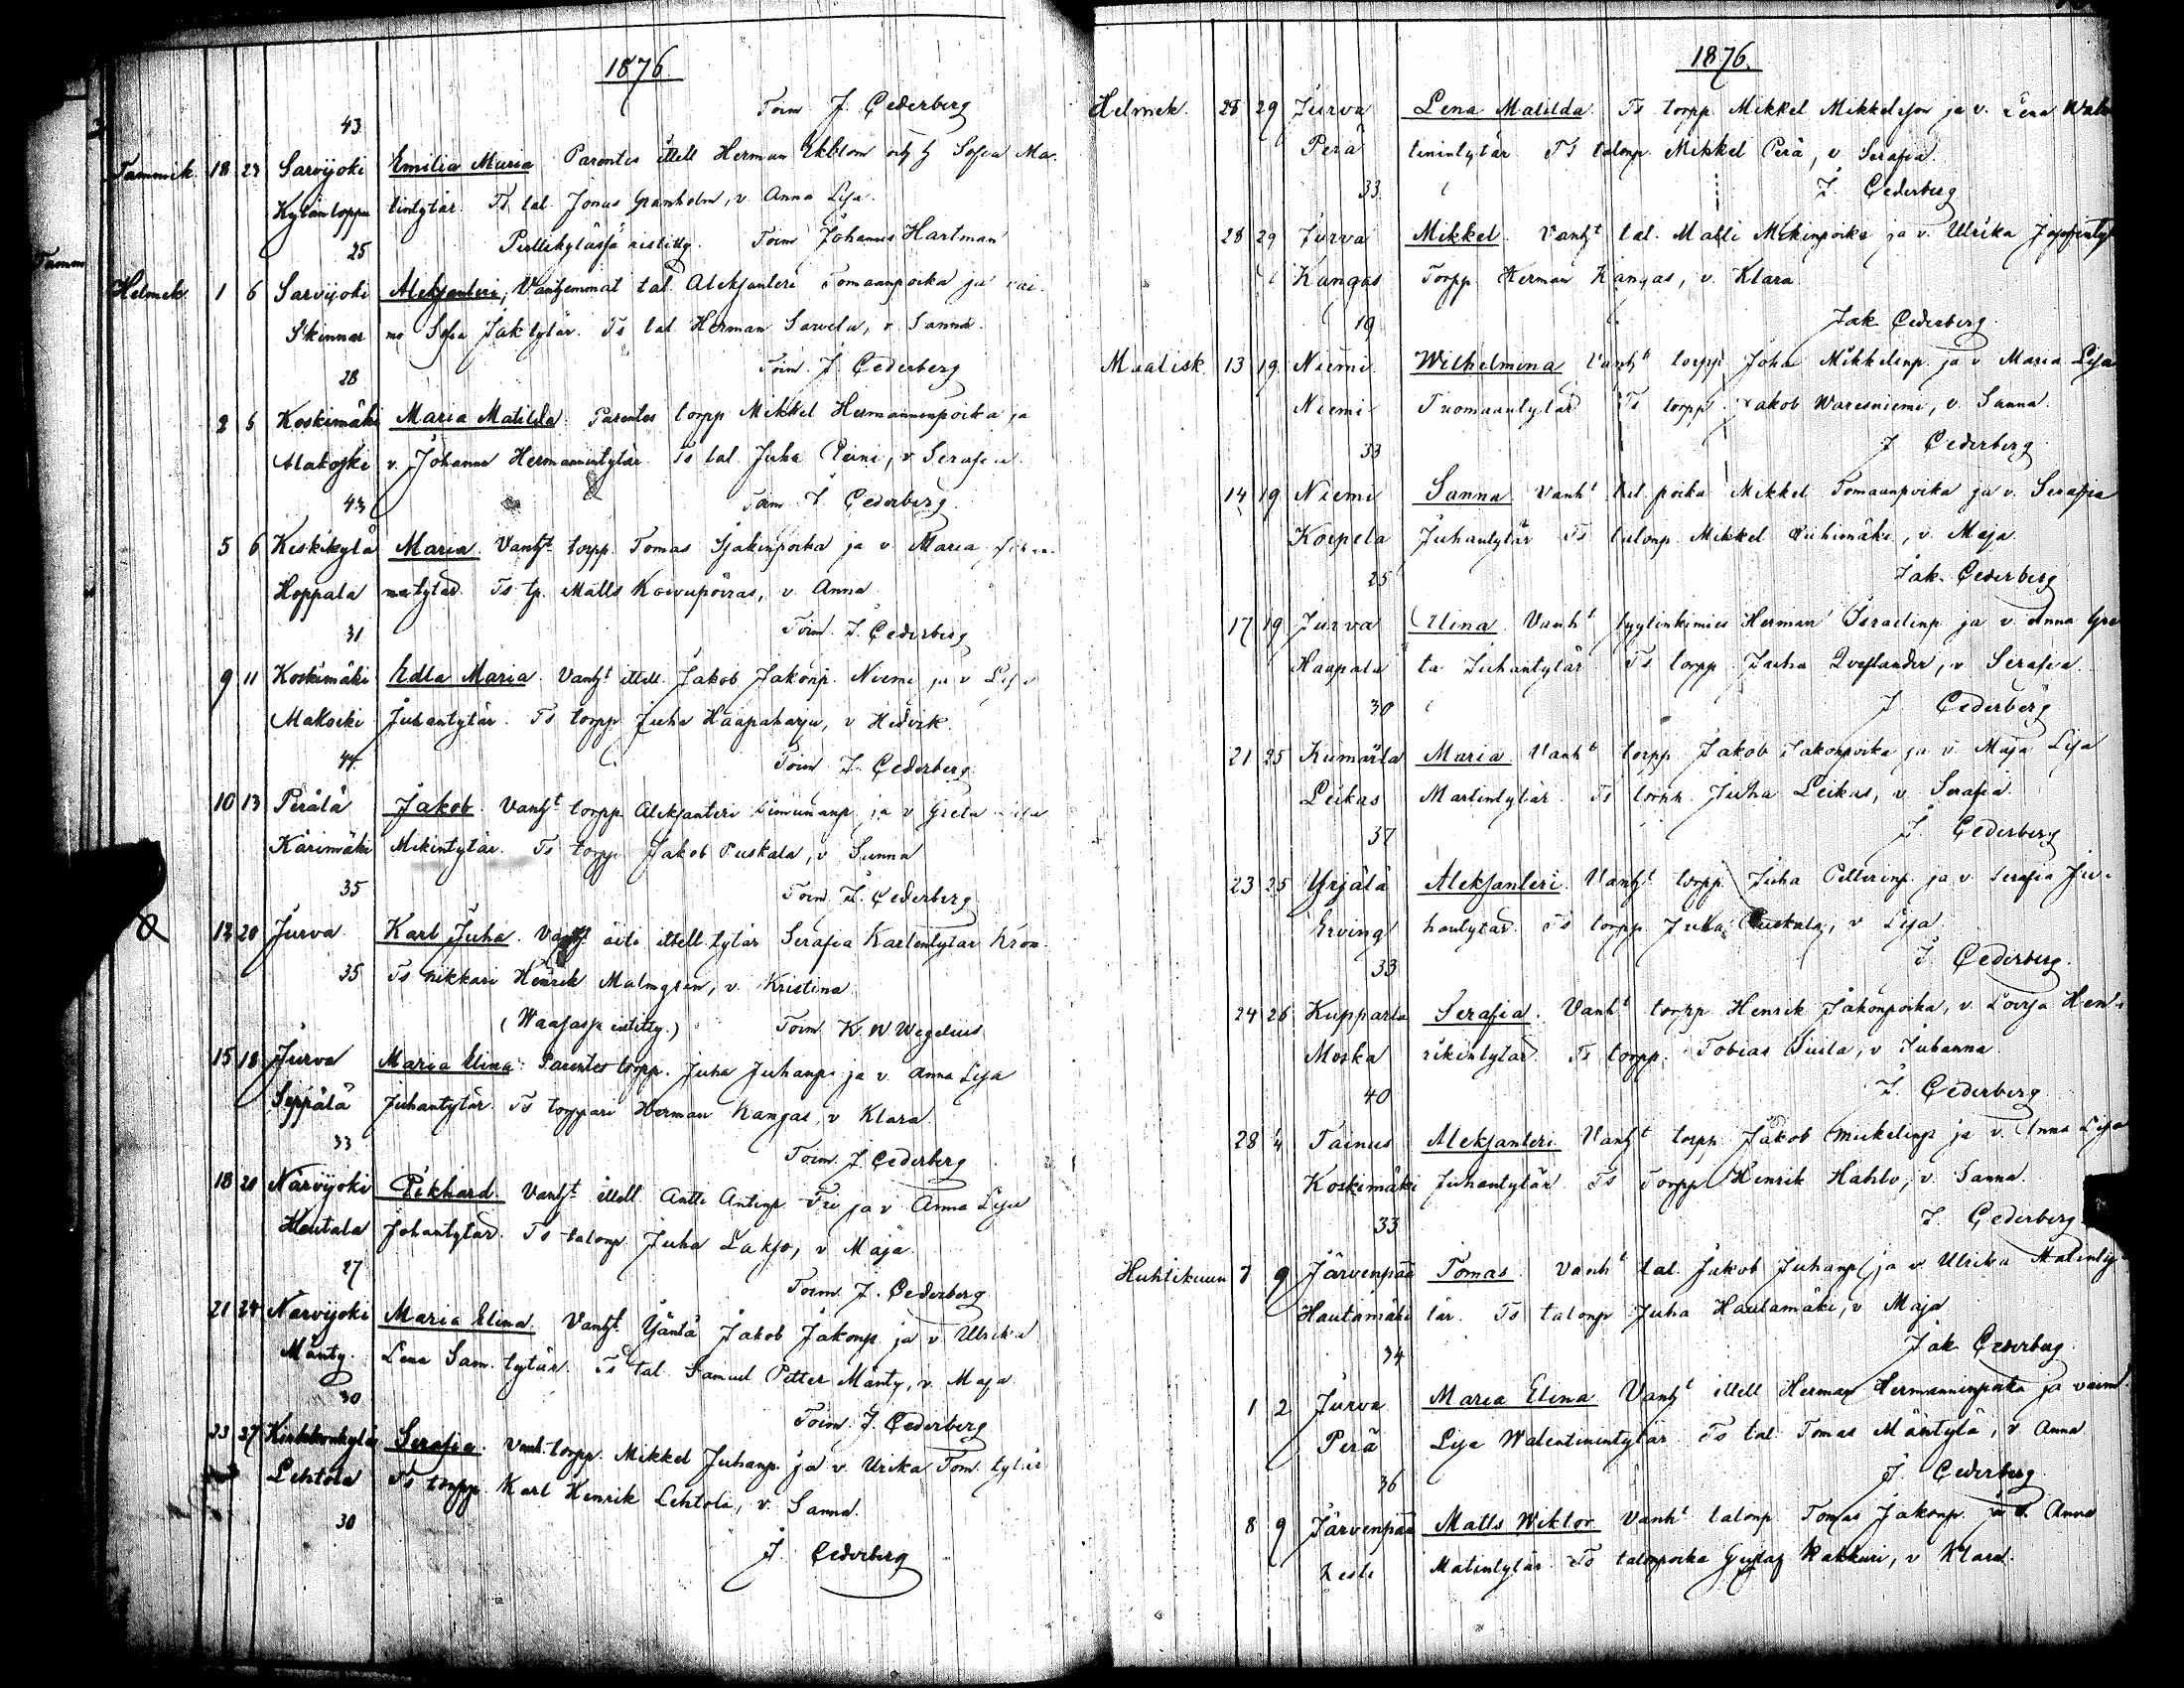 1876
Toim J. Cederberg
43
Tammik. 18 23 Sarvijoki Emilia Maria Parentes ittell Herman Ekblom och h Sofia Ma.
Kylänloppu tintytär. Ts tal. Jonas Granholm, v. Anna Lisa.
25 Perttikylässä ristitty. Toim Johannes Hartman
Tamm
Helmek 1 6 Sarvijoki Aleksanteri, Vanhemmat tal. Aleksanteri Tomaanpoika ja vai.
Skinnar mo Sofia Jak tytär. Ts tal Herman Sarvela, v Sanna.
28 Toim. J Cederberg
2 5 Koskimäki Maria Matilda. Parentes torpp Mikkel Hermanninpoika ja
Alakoski v. Johanna Hermannintytär. Ts tal. Juha Leini, v Serafia
43 Toim J Cederberg
5 6 Keskikylä Maria. Vanht torpp. Tomas Isakinpoika ja v. Maria
Hoppala tytär. Ts tp. Matts Koivuporras, v. Anna
31 Toim. J. Cederberg
9 11 Koskimäki Edla Maria. Vanht ittell. Jakob Jakonp. Niemi ja v Lisa
Makoski Juhantytär. Ts torpp Juha Haapaharju, v Hedvik.
44 Toim. J. Cederberg
10 13 Perälä Jakob. Vanht torpp Aleksanteri Simunanp ja v Greta Lisa
Karimäki Mikintytär. Ts torpp. Jakob Puskala, v Sanna
35 Toim J. Cederberg
13 20 Jurva Karl Juha. Vanh. äiti ittell. tytär Serafia Karlentytär Kron
35 Ts nikkari Henrik Malmgren, v. Kristina
(Waasassa ristitty.) Toim K. W Wegelius
15 18 Jurva Maria Elina. Parentes torpp. Juha Juhanp. ja v. Anna Lisa
Seppälä Juhantytär. Ts torppari Herman Kangas, v Klara.
33 Toim. J. Cederberg
18 20 Närvijoki Rikhard. Vanht ittell Antti Antinp Fri ja v Anna Lisa
Hautala Johantytär. Ts talonp. Juha Lakso, v Maja.
27 Toim. J. Cederberg
21 24 Närvijoki Maria Elina. Vanht. Jakob Jakonp. ja v Ulrika
Mänty. Lena Sam. tytär. Ts tal Samuel Petter Mänty, v. Maja
30 Toim. J. Cederberg
23 27 Serafia. Vanh. torpp. Mikkel Juhanp. ja v. Urika Tom. tytär
Lehtola Ts torpp. Karl Henrik Lehtola, v. Sanna.
30
J. Cederberg
1876.
Helmek. 28 29 Jurva Lena Matilda. Ts torpp. Mikkel Mikkelsson ja v. Lena Walen
Perä tinintytär Ts talonp. Mikkel Perä, v Serafia.
33. J. Cederberg
28 29 Jurva Mikkel. Vanht tal. Matti Mikinpoika ja v. Ulrika Josefintyt
Kangas Torpp. Herman Kangas, v. Klara
19 Jak Cederberg
Maalisk. 13 19 Niemi Wilhelmina Vanht torpp. Johan Mikkelinp ja v Maria Lisa
Niemi Tuomaantytär Ts torpp. Jakob Waresniemi, v. Sanna
33 J Cederberg
14 19 Niemi Sanna Vanht tal. poika Mikkel Tomaanpoika ja v. Serafia
Korpela Juhantytär Ts talonp. Mikkel Riihimäki, v. Maja
25 Jak. Cederberg
17 19 Jurva Elina. Vanht syytinkimies Herman Israelinp ja v. Anna Gre
Haapala ta Juhantytär Ts torpp. Juha Qvistlander, v Serafia
30 J Cederberg
21 25 Kumärla Maria Vanht torpp Jakob Jakonpoika ja v Maja Lisa
Leikas Martintytär. Ts torpp. Juha Leikas, v Serafia
37 J. Cederberg
23 25 Yrjälä Aleksanteri. Vanht torpp. Juha Petterinp. ja v. Serafia Ju-
Erving hantytär. Ts torpp Juha Puskala, v Lisa
33 J. Cederberg.
24 26 Kupparla Serafia. Vanht torpp Henrik Jakonpoika, v. Lovisa Hen-
Moska rikintytär. Ts torpp. Tobias, v Juhanna
40 J. Cederberg
28 4 Tainus Aleksanteri Vanht torpp Jakob Mickelinp ja v. Anna Lisa
Koskimäki Juhantytär Ts Torpp. Henrik Hahlo, v. Sanna.
33 J. Cederberg
Huhtikuun 7 9 Järvenpää Tomas. Vanht tal. Jakob Juhanp. ja v Ulrika Matinty
Hautamäki tär. Ts talonp Juha Hautamäki, v Maja
34 Jak Cederberg
1 2 Jurva Maria Elina Vanht ittell Herman Hermanninpoika ja vaim.
Perä Lisa Walentinintytär Ts tal Tomas Mäntylä, v Anna
36 J Cederberg
8 9 Järvenpää Matts Wiktor Vanht talonp Tomas Jakonp. ja v. Anna
Matintytär Ts talonpoika Gustaf Rakkuri, v Klara.